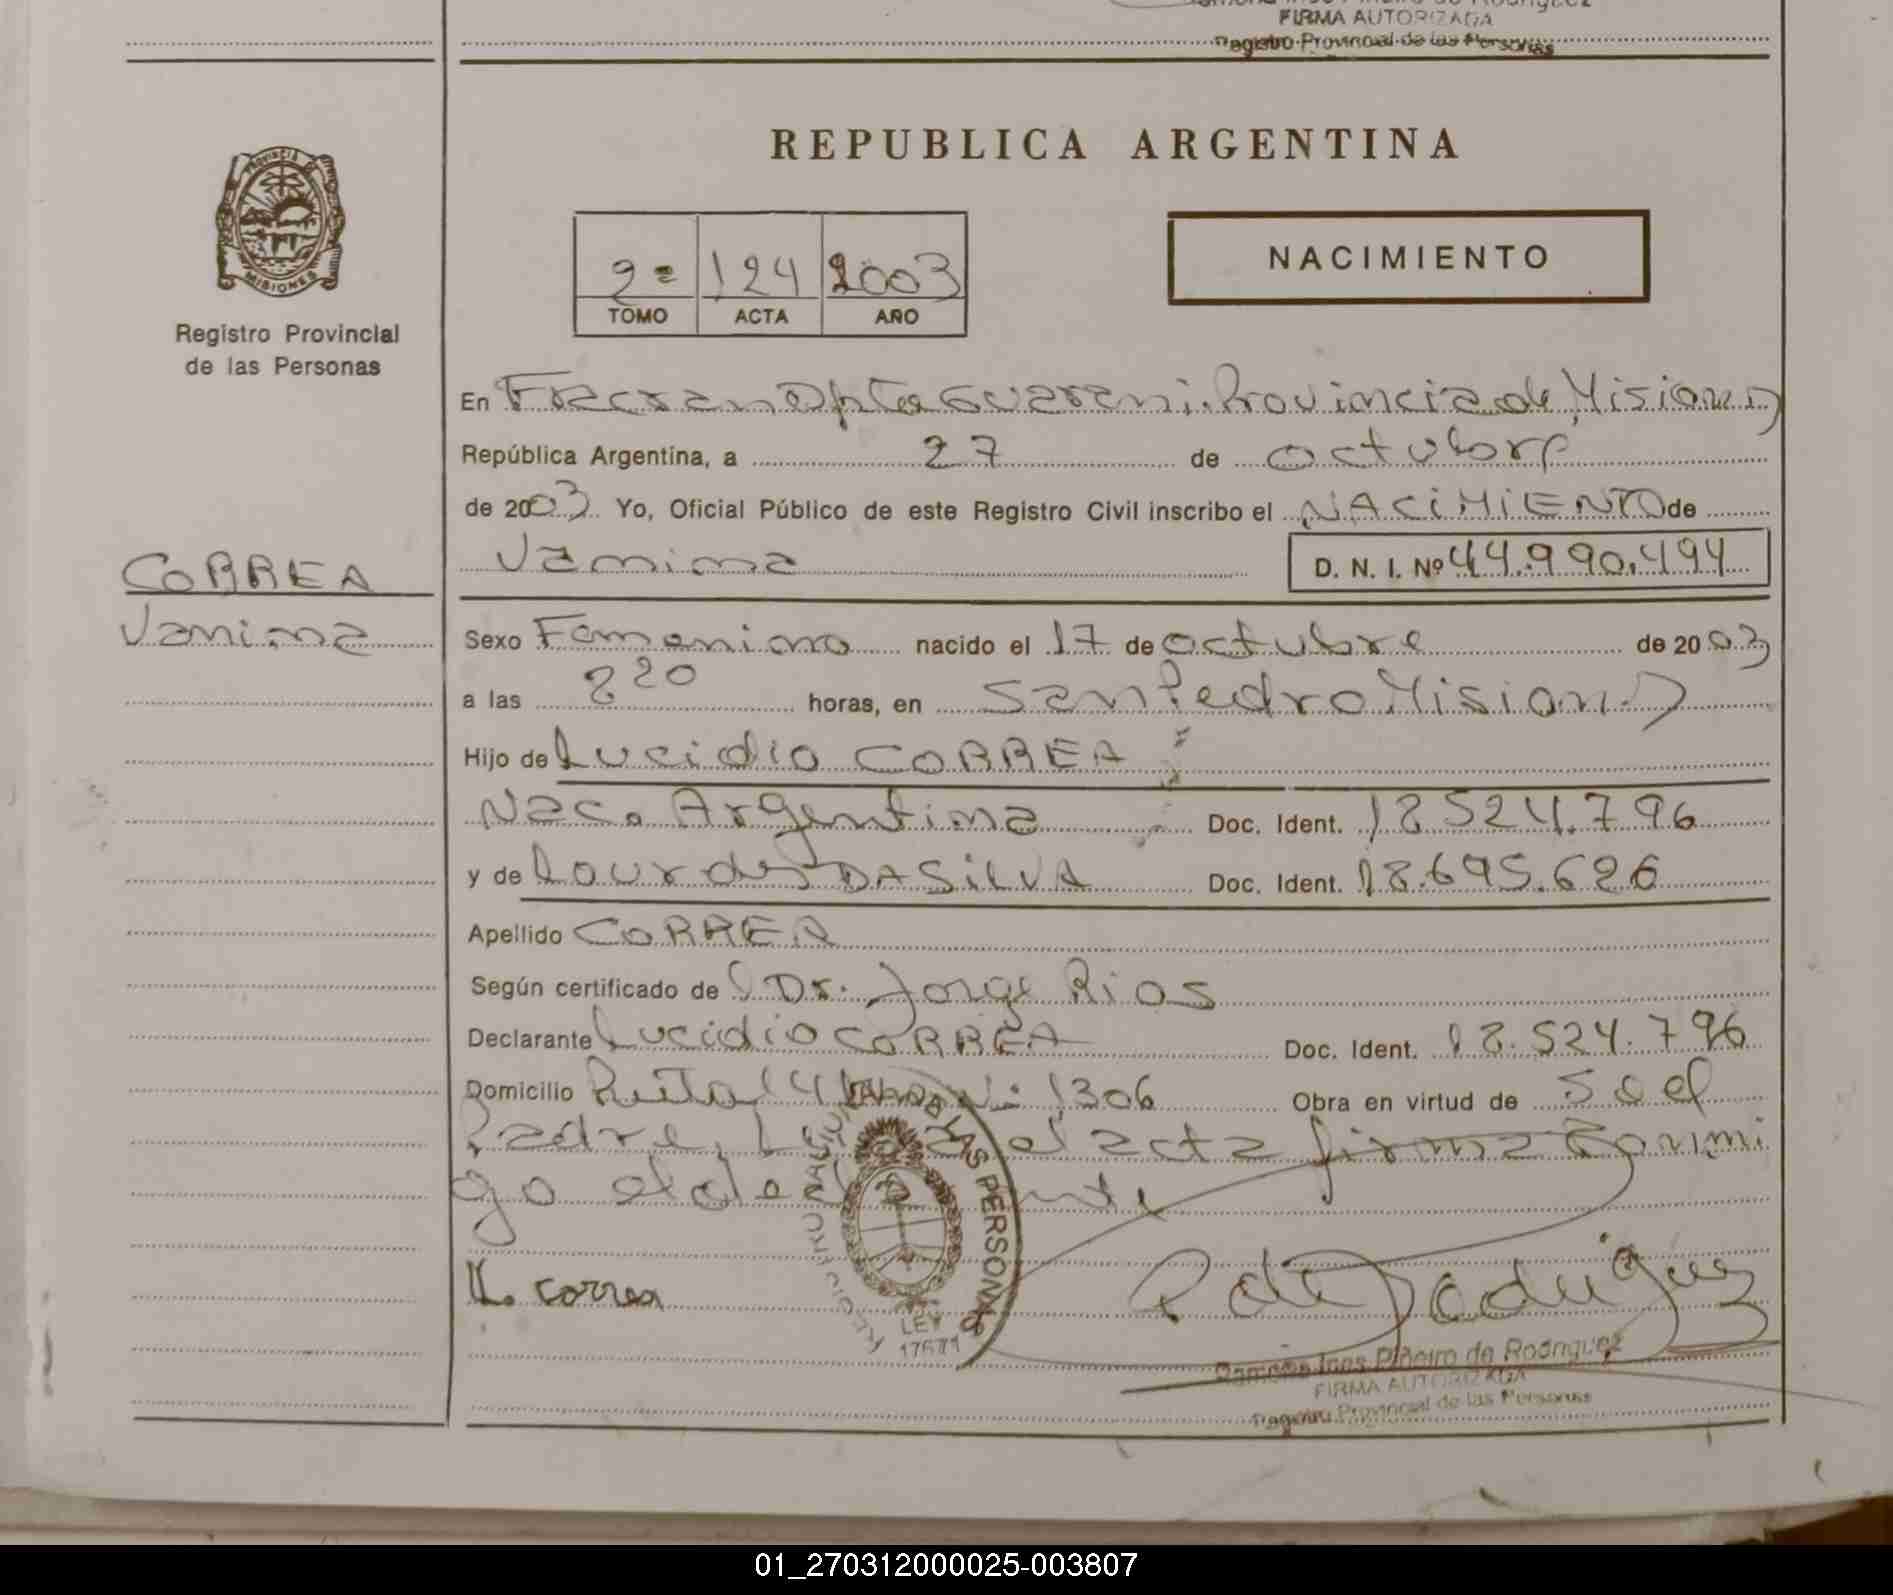 FIRMA AUTORIZADA
Registro Provincial de las Personas
REPUBLICA ARGENTINA
PROVINCIA DE
MISIONES
Registro Provincial
de las Personas
2º 124 2003
TOMO ACTA AÑO
NACIMIENTO
En Fracran Dpto Guarani Provincia de Misiones
República Argentina, a 27 de octubre
de 2003 Yo, Oficial Público de este Registro Civil inscribo el NACIMIENTO de
CORREA
Janina
Janina D. N. I. Nº 44.990.494
Sexo Femenino nacido el 17 de octubre de 2003
a las 220 horas, en San Pedro Misiones
Hijo de Lucidio CORREA
Nac. Argentina Doc. Ident. 18524.796
y de Lourdes DA SILVA Doc. Ident. 18.695.626
Apellido CORREA
Según certificado de Dr. Jorge Rios
Declarante Lucidio CORREA Doc. Ident. 18.524.796
Domicilio Ruta 14 1306 Obra en virtud de So el
Padre, el acta firma Conmi
go el
L. Correa
LAS PERSONAS
LEY
17671
Ramona Ines Piñeiro de Rodriguez
FIRMA AUTORIZADA
Registro Provincial de las Personas
01_270312000025-003807